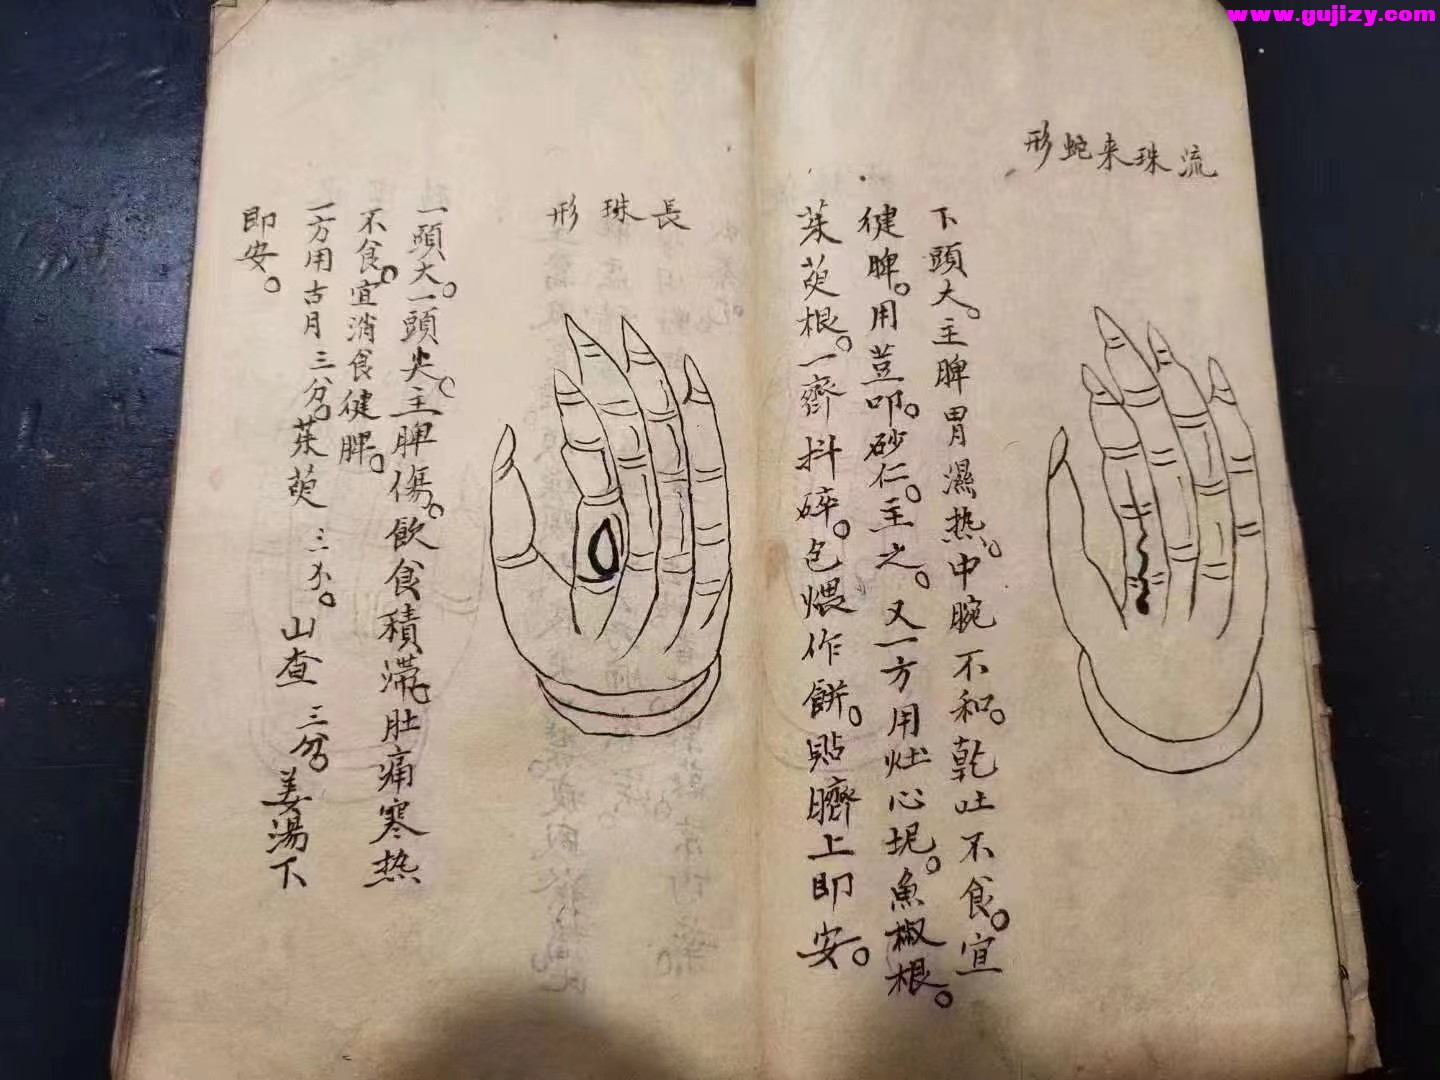 www.gujizy.com
流珠来蛇形
下頭大。主脾胃濕热。中腕不和。乾吐不食。宜
健脾。用荳叩。砂仁。主之。又一方用灶心坭。魚椒根。
茱萸根。一齊抖碎。包煨作餅。貼臍上即安。
長珠形
一頭大。一頭尖。主脾傷。飲食積滯。肚痛寒热
不食。宜消食健脾。
一方用古月三分。茱萸三分。山查三分。姜湯下
即安。